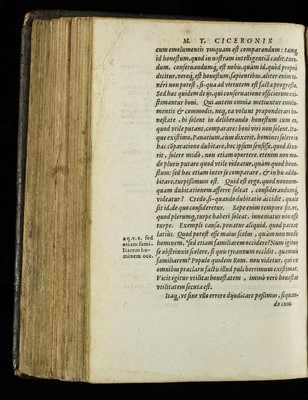 M. T. CICERONIS
cum emolumentis vnquam est comparandum: tamq́;
id honestum, quod in nostram intelligentiã cadit, tuen-
dum, conseruandumq́; est nobis, quàm id, quòd propriè
dicitur, verèq́; est honestum, sapientibus. aliter enim te-
neri non potest, si-qua ad virtutem est facta progressio.
Sed hæc quidem de ijs, qui conseruatione officiorum exi-
stimantur boni. Qui autem omnia metiuntur emolu-
mentis & commodis, neq; ea volunt præponderari ho-
nestate, hi solent in deliberando honestum cum eo,
quod vtile putant, comparare: boni viri non solent. Ita-
que existimo, Panætium, cùm dixerit, homines solere in
hac cõparatione dubitare, hoc ipsum sensisse, quod dixe-
rit, solere modo, non etiam oportere. etenim non mo-
do pluris putare quod vtile videatur, quàm quod hone-
stum: sed hæc etiam inter se comparare, & in his addu-
bitare, turpissimum est. Quid est ergo, quod nonnun-
quam dubitationem afferre soleat, considerandumq́;
videatur? Credo, si-quando dubitatio accidit, quale
sit id, de quo consideretur. Sæpe enim tempore fit, vt,
quod plerumq; turpe haberi soleat, inueniatur non esse
turpe. Exempli caussa, ponatur aliquid, quod pateat
latius. Quod potest esse maius scelus, quàm non modò
hominem, ᵃsed etiam familiarem hominem occidere? Num igitur
se obstrinxit scelere, si-quis tyrannum occidit, quamuis
familiarem? Populo quidem Rom. non videtur, qui ex
omnibus præclaris factis illud pulcherrimum existimat.
Vicit igitur vtilitas honestatem, immò verò honestas
vtilitatem secuta est.
Itaq, vt sine vllo errore dijudicare possimus, si-quan-
do cum
a q. v. c. sed
etiam fami-
liarem ho-
minem occ.